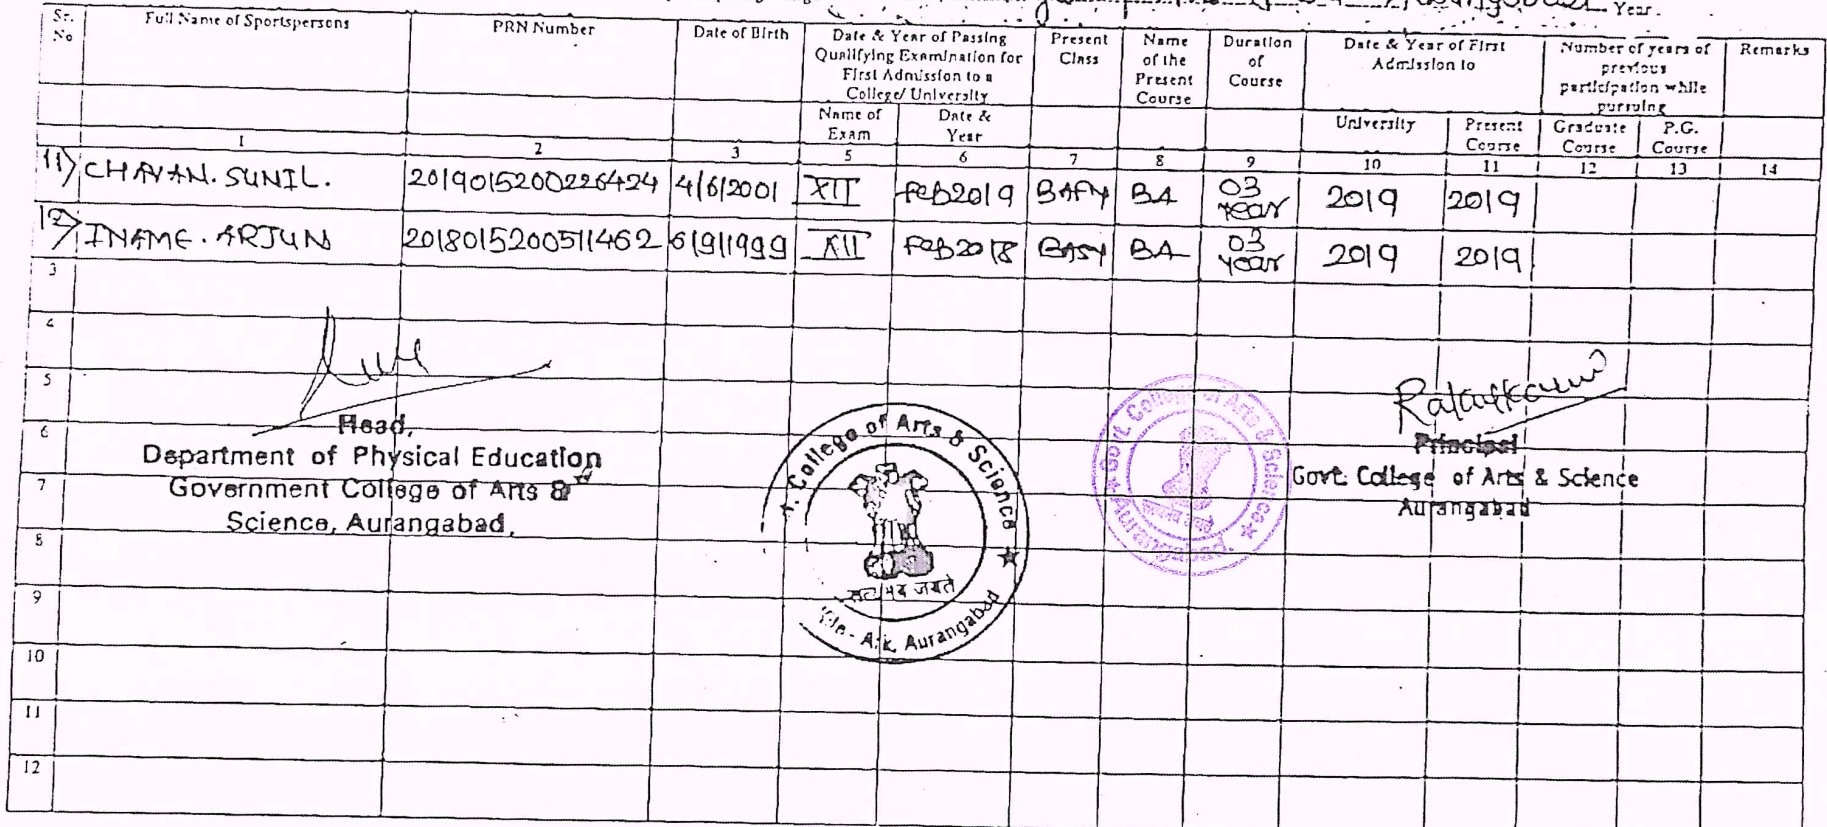 Year.
Sr. No | Full Name of Sportspersons | PRN Number | Date of Birth | Date & Year of Passing Qualifying Examination for First Admission to a College/ University | Present Class | Name of the Present Course | Duration of Course | Date & Year of First Admission to | Number of years of previous participation while pursuing | Remarks
Name of Exam | Date & Year | University | Present Course | Graduate Course | P.G. Course
1 | 2 | 3 | 5 | 6 | 7 | 8 | 9 | 10 | 11 | 12 | 13 | 14
11) CHAVAN. SUNIL. | 2019015200226424 | 4/6/2001 | XII | Feb2019 | BAFY | BA | 03 Year | 2019 | 2019
12) INAME. ARJUN | 2018015200511462 | 6/9/1999 | XII | Feb2018 | BASY | BA | 03 Year | 2019 | 2019
3
4
5
6
7
8
9
10
11
12
Head,
Department of Physical Education
Government College of Arts &
Science, Aurangabad.
College of Arts & Science
सत्यमेव जयते
Aurangabad
Govt. College of Arts & Science
Aurangabad
Principal
Govt. College of Arts & Science
Aurangabad